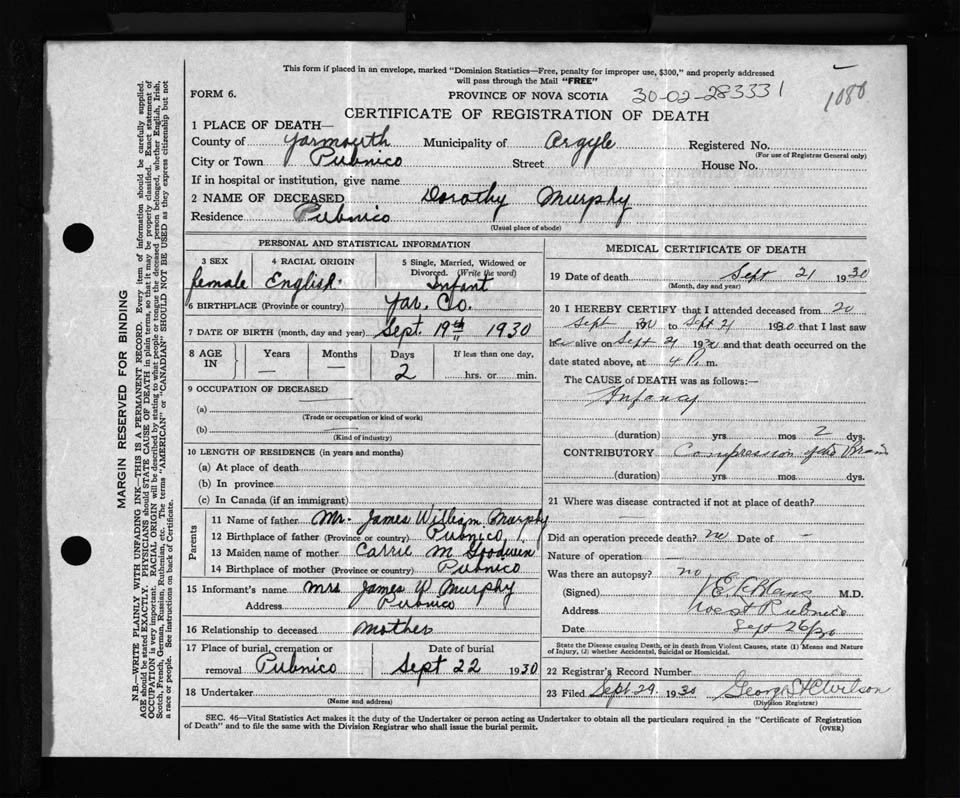 This form if placed in an envelope, marked "Dominion Statistics—Free, penalty for improper use, $300," and properly addressed
will pass through the Mail "FREE"
FORM 6.
PROVINCE OF NOVA SCOTIA 30-02-283331
1086
CERTIFICATE OF REGISTRATION OF DEATH
1 PLACE OF DEATH—
County of Yarmouth Municipality of Argyle Registered No.
(For use of Registrar General only)
City or Town Pubnico Street House No.
If in hospital or institution, give name
2 NAME OF DECEASED Dorothy Murphy
Residence Pubnico
(Usual place of abode)
PERSONAL AND STATISTICAL INFORMATION
3 SEX 4 RACIAL ORIGIN 5 Single, Married, Widowed or
Divorced. (Write the word)
female English. Infant
6 BIRTHPLACE (Province or country) Yar. Co.
7 DATE OF BIRTH (month, day and year) Sept. 19th 1930
8 AGE IN Years Months Days If less than one day,
— — 2 hrs. or min.
9 OCCUPATION OF DECEASED
(a)
(Trade or occupation or kind of work)
(b)
(Kind of industry)
10 LENGTH OF RESIDENCE (in years and months)
(a) At place of death
(b) In province
(c) In Canada (if an immigrant)
Parents
11 Name of father Mr. James William Murphy
12 Birthplace of father (Province or country) Pubnico
13 Maiden name of mother Carrie M Goodwin
14 Birthplace of mother (Province or country) Pubnico
15 Informant's name Mrs James W Murphy
Address Pubnico
16 Relationship to deceased mother
17 Place of burial, cremation or Date of burial
removal Pubnico Sept 22 1930
18 Undertaker
(Name and address)
MEDICAL CERTIFICATE OF DEATH
19 Date of death Sept 21 1930
(Month, day and year)
20 I HEREBY CERTIFY that I attended deceased from 20
Sept 30 to Sept 21 1930 that I last saw
her alive on Sept 21 1930 and that death occurred on the
date stated above, at 4 P. m.
The CAUSE of DEATH was as follows:—
Infancy
(duration) yrs mos 2 dys.
CONTRIBUTORY Compression of the Brain
(duration) yrs. mos dys.
21 Where was disease contracted if not at place of death?
Did an operation precede death? no Date of —
Nature of operation
Was there an autopsy? no
(Signed) M.D.
Address West Pubnico
Date Sept 26/30
State the Disease causing Death, or in death from Violent Causes, state (1) Means and Nature
of Injury, (2) whether Accidental, Suicidal or Homicidal.
22 Registrar's Record Number
23 Filed Sept 29. 1930 George St C Wilson
(Division Registrar)
SEC. 46—Vital Statistics Act makes it the duty of the Undertaker or person acting as Undertaker to obtain all the particulars required in the "Certificate of Registration
of Death" and to file the same with the Division Registrar who shall issue the burial permit.
(OVER)
MARGIN RESERVED FOR BINDING
N.B.—WRITE PLAINLY WITH UNFADING INK—THIS IS A PERMANENT RECORD. Every item of information should be carefully supplied.
AGE should be stated EXACTLY. PHYSICIANS should STATE CAUSE OF DEATH in plain terms, so that it may be properly classified. Exact statement of
OCCUPATION is very important. RACIAL ORIGIN will be described by stating to what people or tongue the deceased person belonged, whether English, Irish,
Scotch, French, German, Russian, Ruthenian, etc. The terms "AMERICAN" or "CANADIAN" SHOULD NOT BE USED as they express citizenship but not
a race or people. See instructions on back of Certificate.